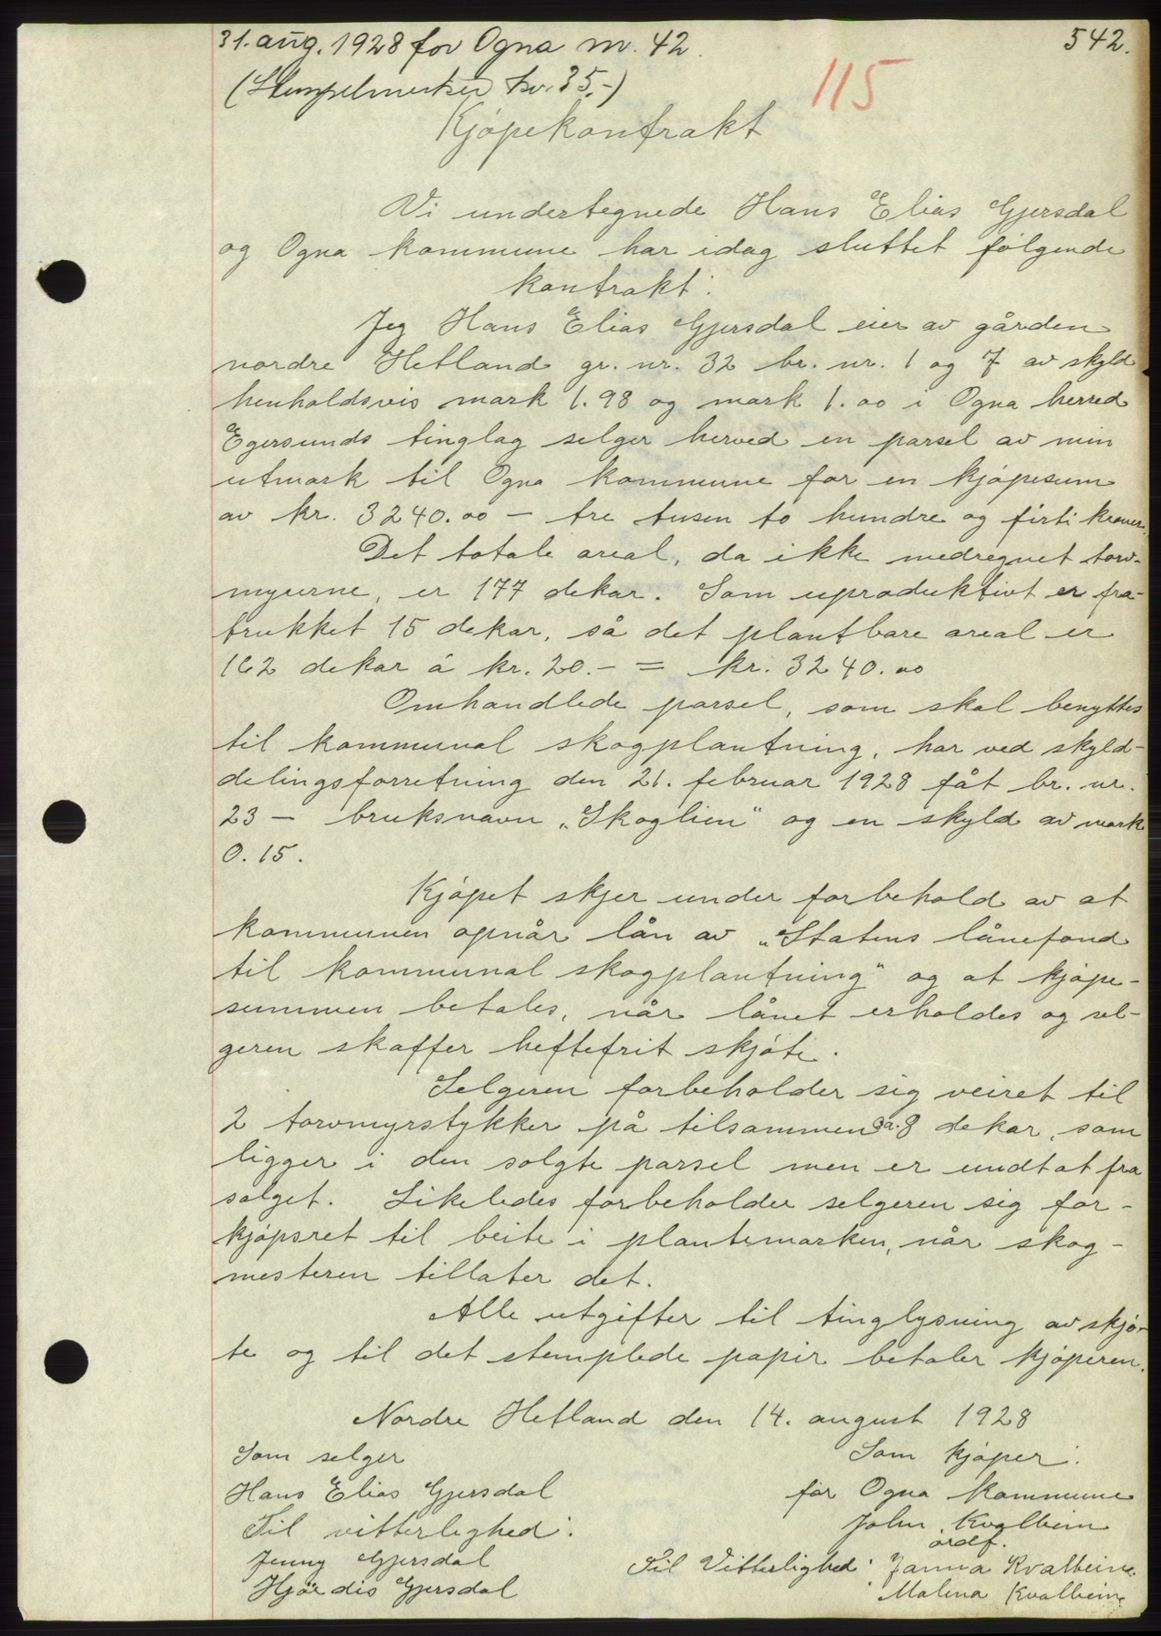 31. aug. 1928 for Ogna nr. 42. 542.
(Stempelmerker kr. 35.-)
115
Kjøpekontrakt
Vi undertegnede Hans Elias Gjersdal
og Ogna kommune har idag sluttet følgende
kontrakt:
Jeg Hans Elias Gjersdal eier av gården
nordre Hetland gr. nr. 32 br. nr. 1 og 7 av skyld
henholdsvis mark 1.98 og mark 1.00 i Ogna herred
Egersunds tinglag selger herved en parsel av min
utmark til Ogna kommune for en kjøpesum
av kr. 3240.00 — tre tusen to hundre og firti kroner.
Det totale areal, da ikke medregnet torv-
myrerne, er 177 dekar. Som uproduktivt er fra-
trukket 15 dekar, så det plantbare areal er
162 dekar á kr. 20.- = kr. 3240.00
Omhandlede parsel, som skal benyttes
til kommunal skogplantning, har ved skyld-
delingsforretning den 21. februar 1928 fåt br. nr.
23 — bruksnavn „Skoglien" og en skyld av mark
0.15.
Kjøpet skjer under forbehold av at
kommunen opnår lån av „Statens lånefond
til kommunal skogplantning" og at kjøpe-
summen betales, når lånet erholdes og sel-
geren skaffer heftefrit skjøte.
Selgeren forbeholder sig veiret til
2 torvmyrstykker på tilsammen ca. 8 dekar, som
ligger i den solgte parsel men er undtat fra
salget. Likeledes forbeholder selgeren sig for-
kjøpsret til beite i plantemarken, når skog-
mesteren tillater det.
Alle utgifter til tinglysning av skjø-
te og til det stemplede papir betaler kjøperen.
Nordre Hetland den 14. august 1928
Som selger Som kjøper:
Hans Elias Gjersdal for Ogna kommune
Til vitterlighed: John Kvalbein
ordf.
Jenny Gjersdal Til Vitterlighed: Janna Kvalbein.
Hjørdis Gjersdal Malena Kvalbein